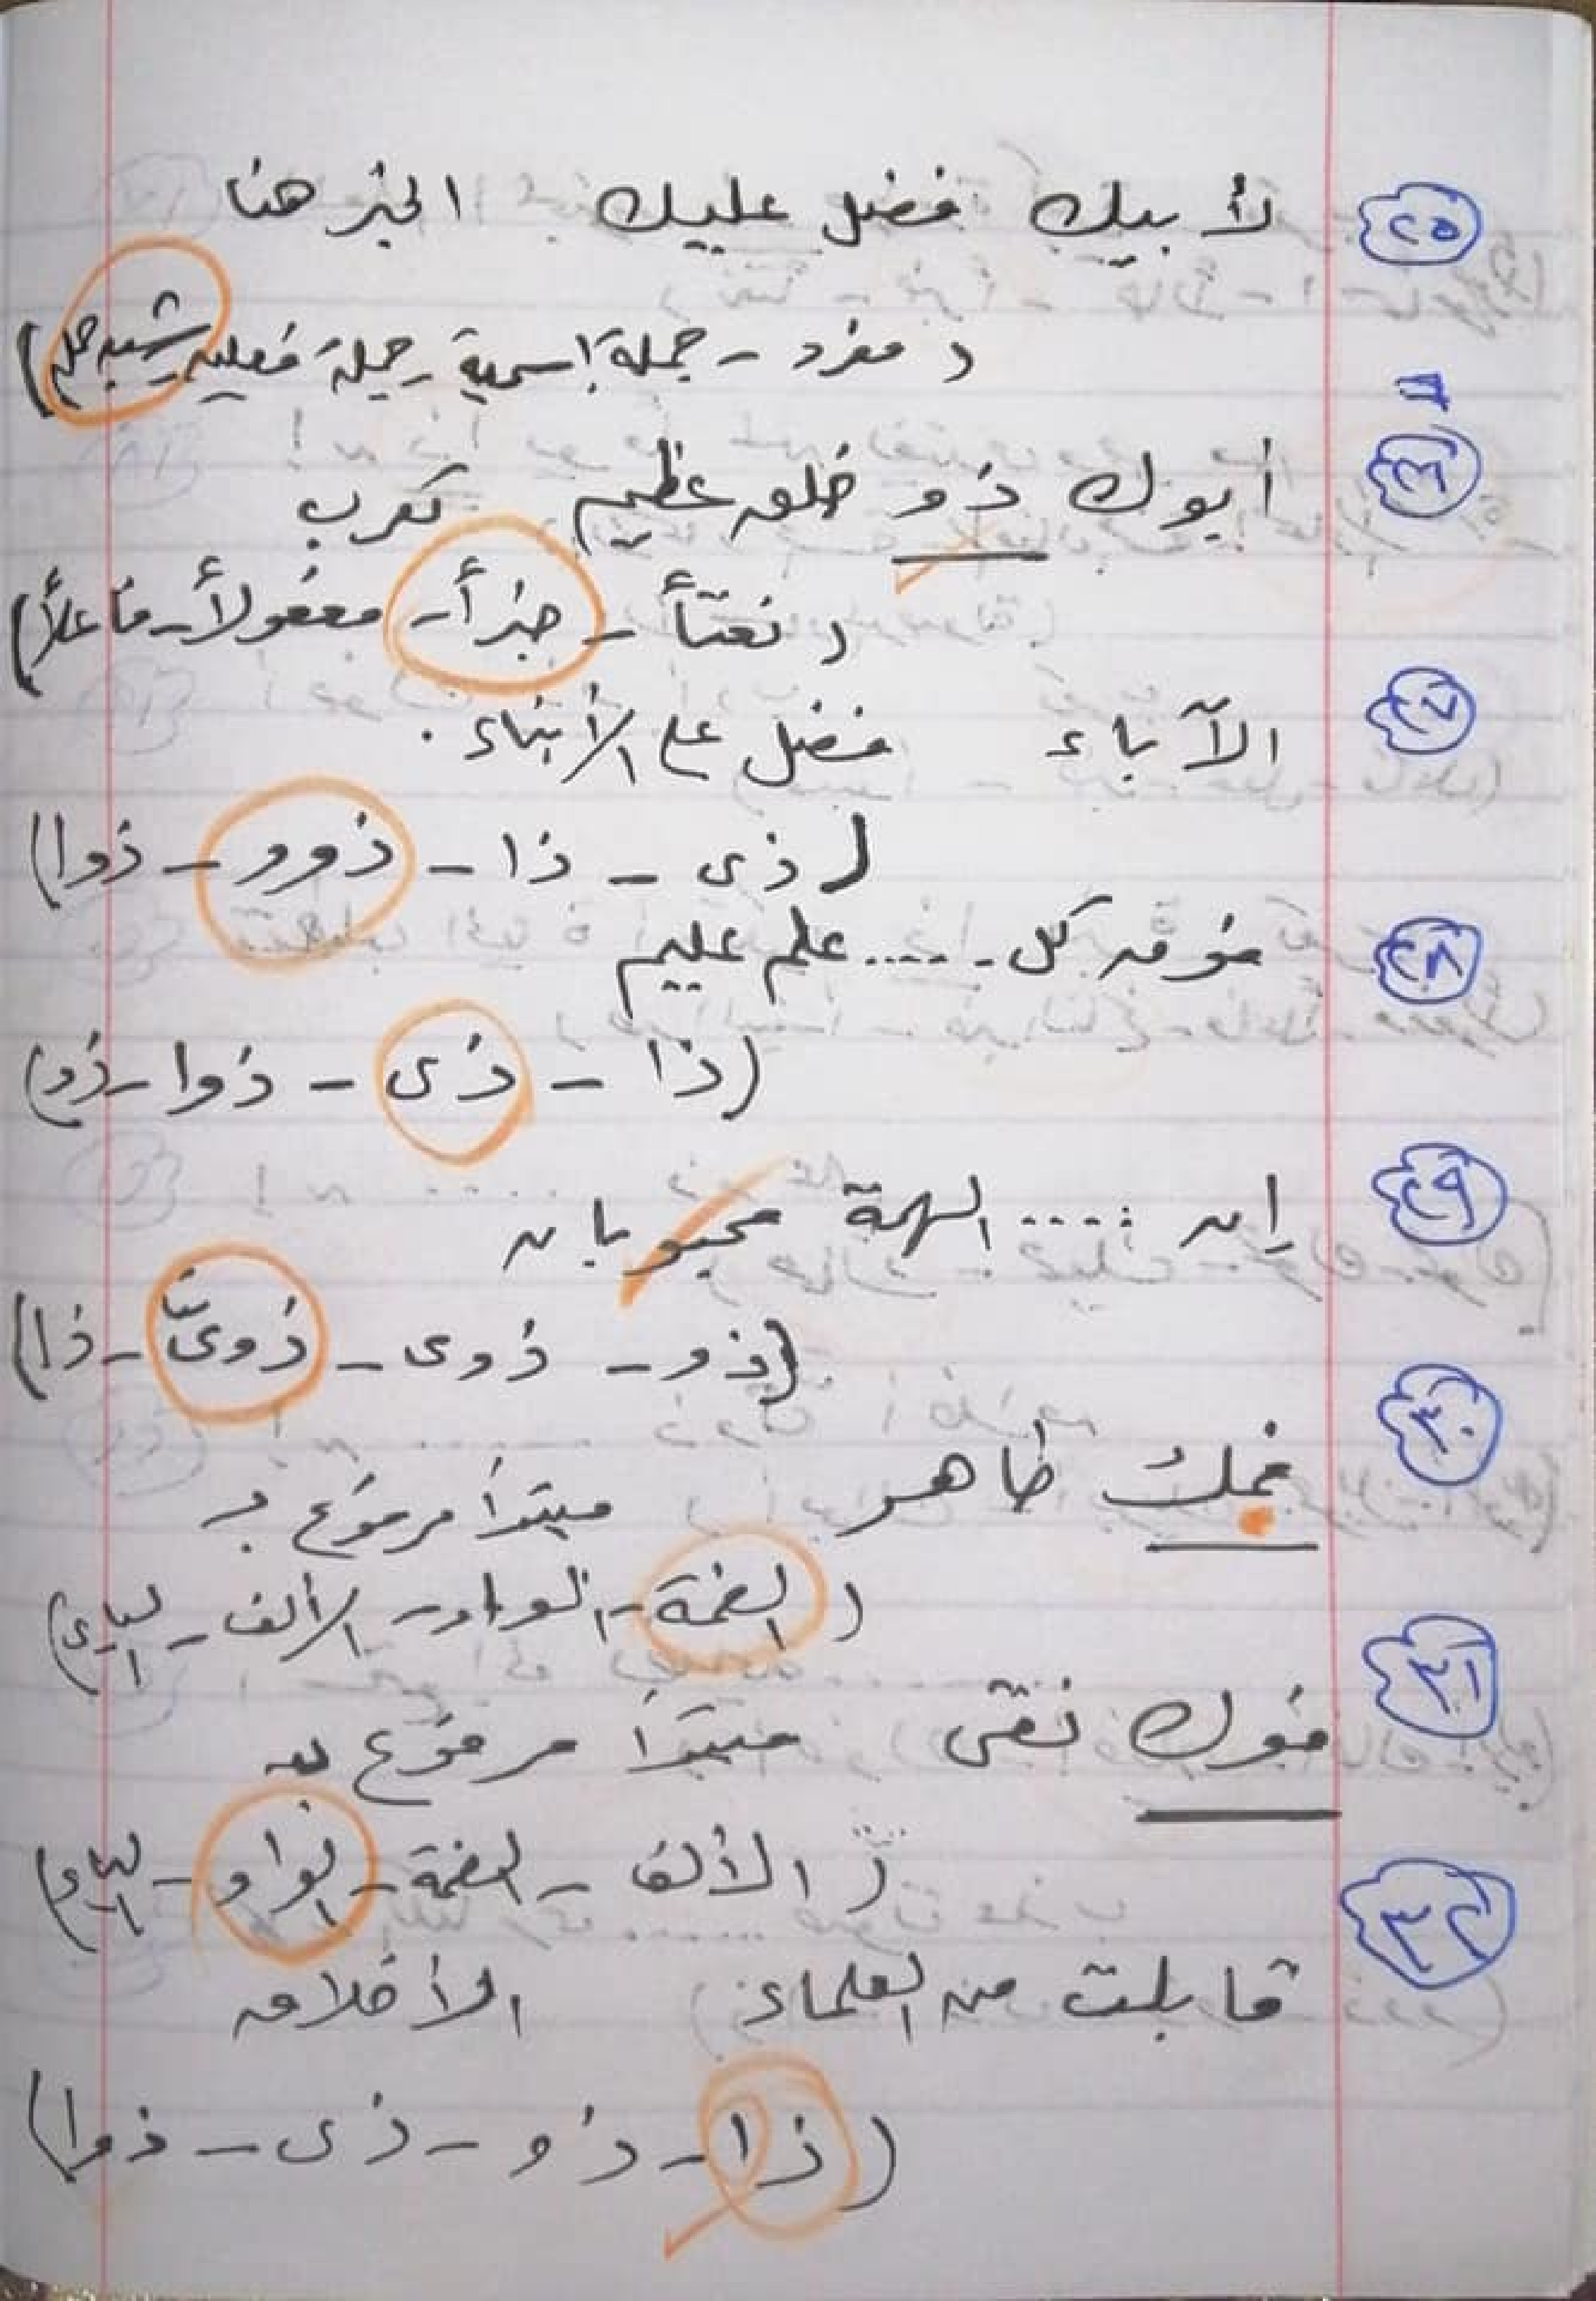 ٢٥ لأبيك فضل عليك الخبر هنا
( مفرد - جملة اسمية - جملة فعلية - شبه جملة )
٢٦ أبوك ذو خلق عظيم تعرب
( نعتاً - خبراً - مفعولاً - فاعلاً )
٢٧ الآباء فضل على الأبناء .
( ذى - ذا - ذوو - ذوا )
٢٨ فوق كل ..... علم عليم
( ذا - ذى - ذوا - ذو )
٢٩ إن ..... الهمة محبوبان
( ذو - ذوى - ذوىْ - ذا )
٣٠ فمك طاهر مبتدأ مرفوع بـ
( الضمة - الواو - الألف - الياء )
٣١ فوك نقى مبتدأ مرفوع بـ
( الألف - الضمة - الواو - الياء )
٣٢ قابلت من العلماء الأخلاق
( ذا - ذو - ذى - ذوا )